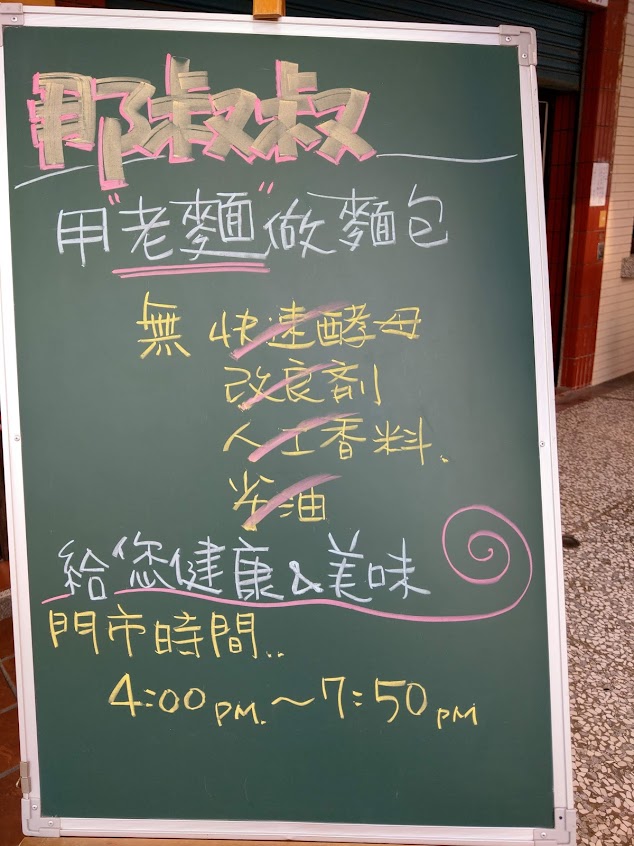 那叔叔
用"老麵"做麵包
無 快速酵母
改良劑
人工香料.
米油
給您健康&美味
門市時間..
4:00 PM. ~ 7:50 PM